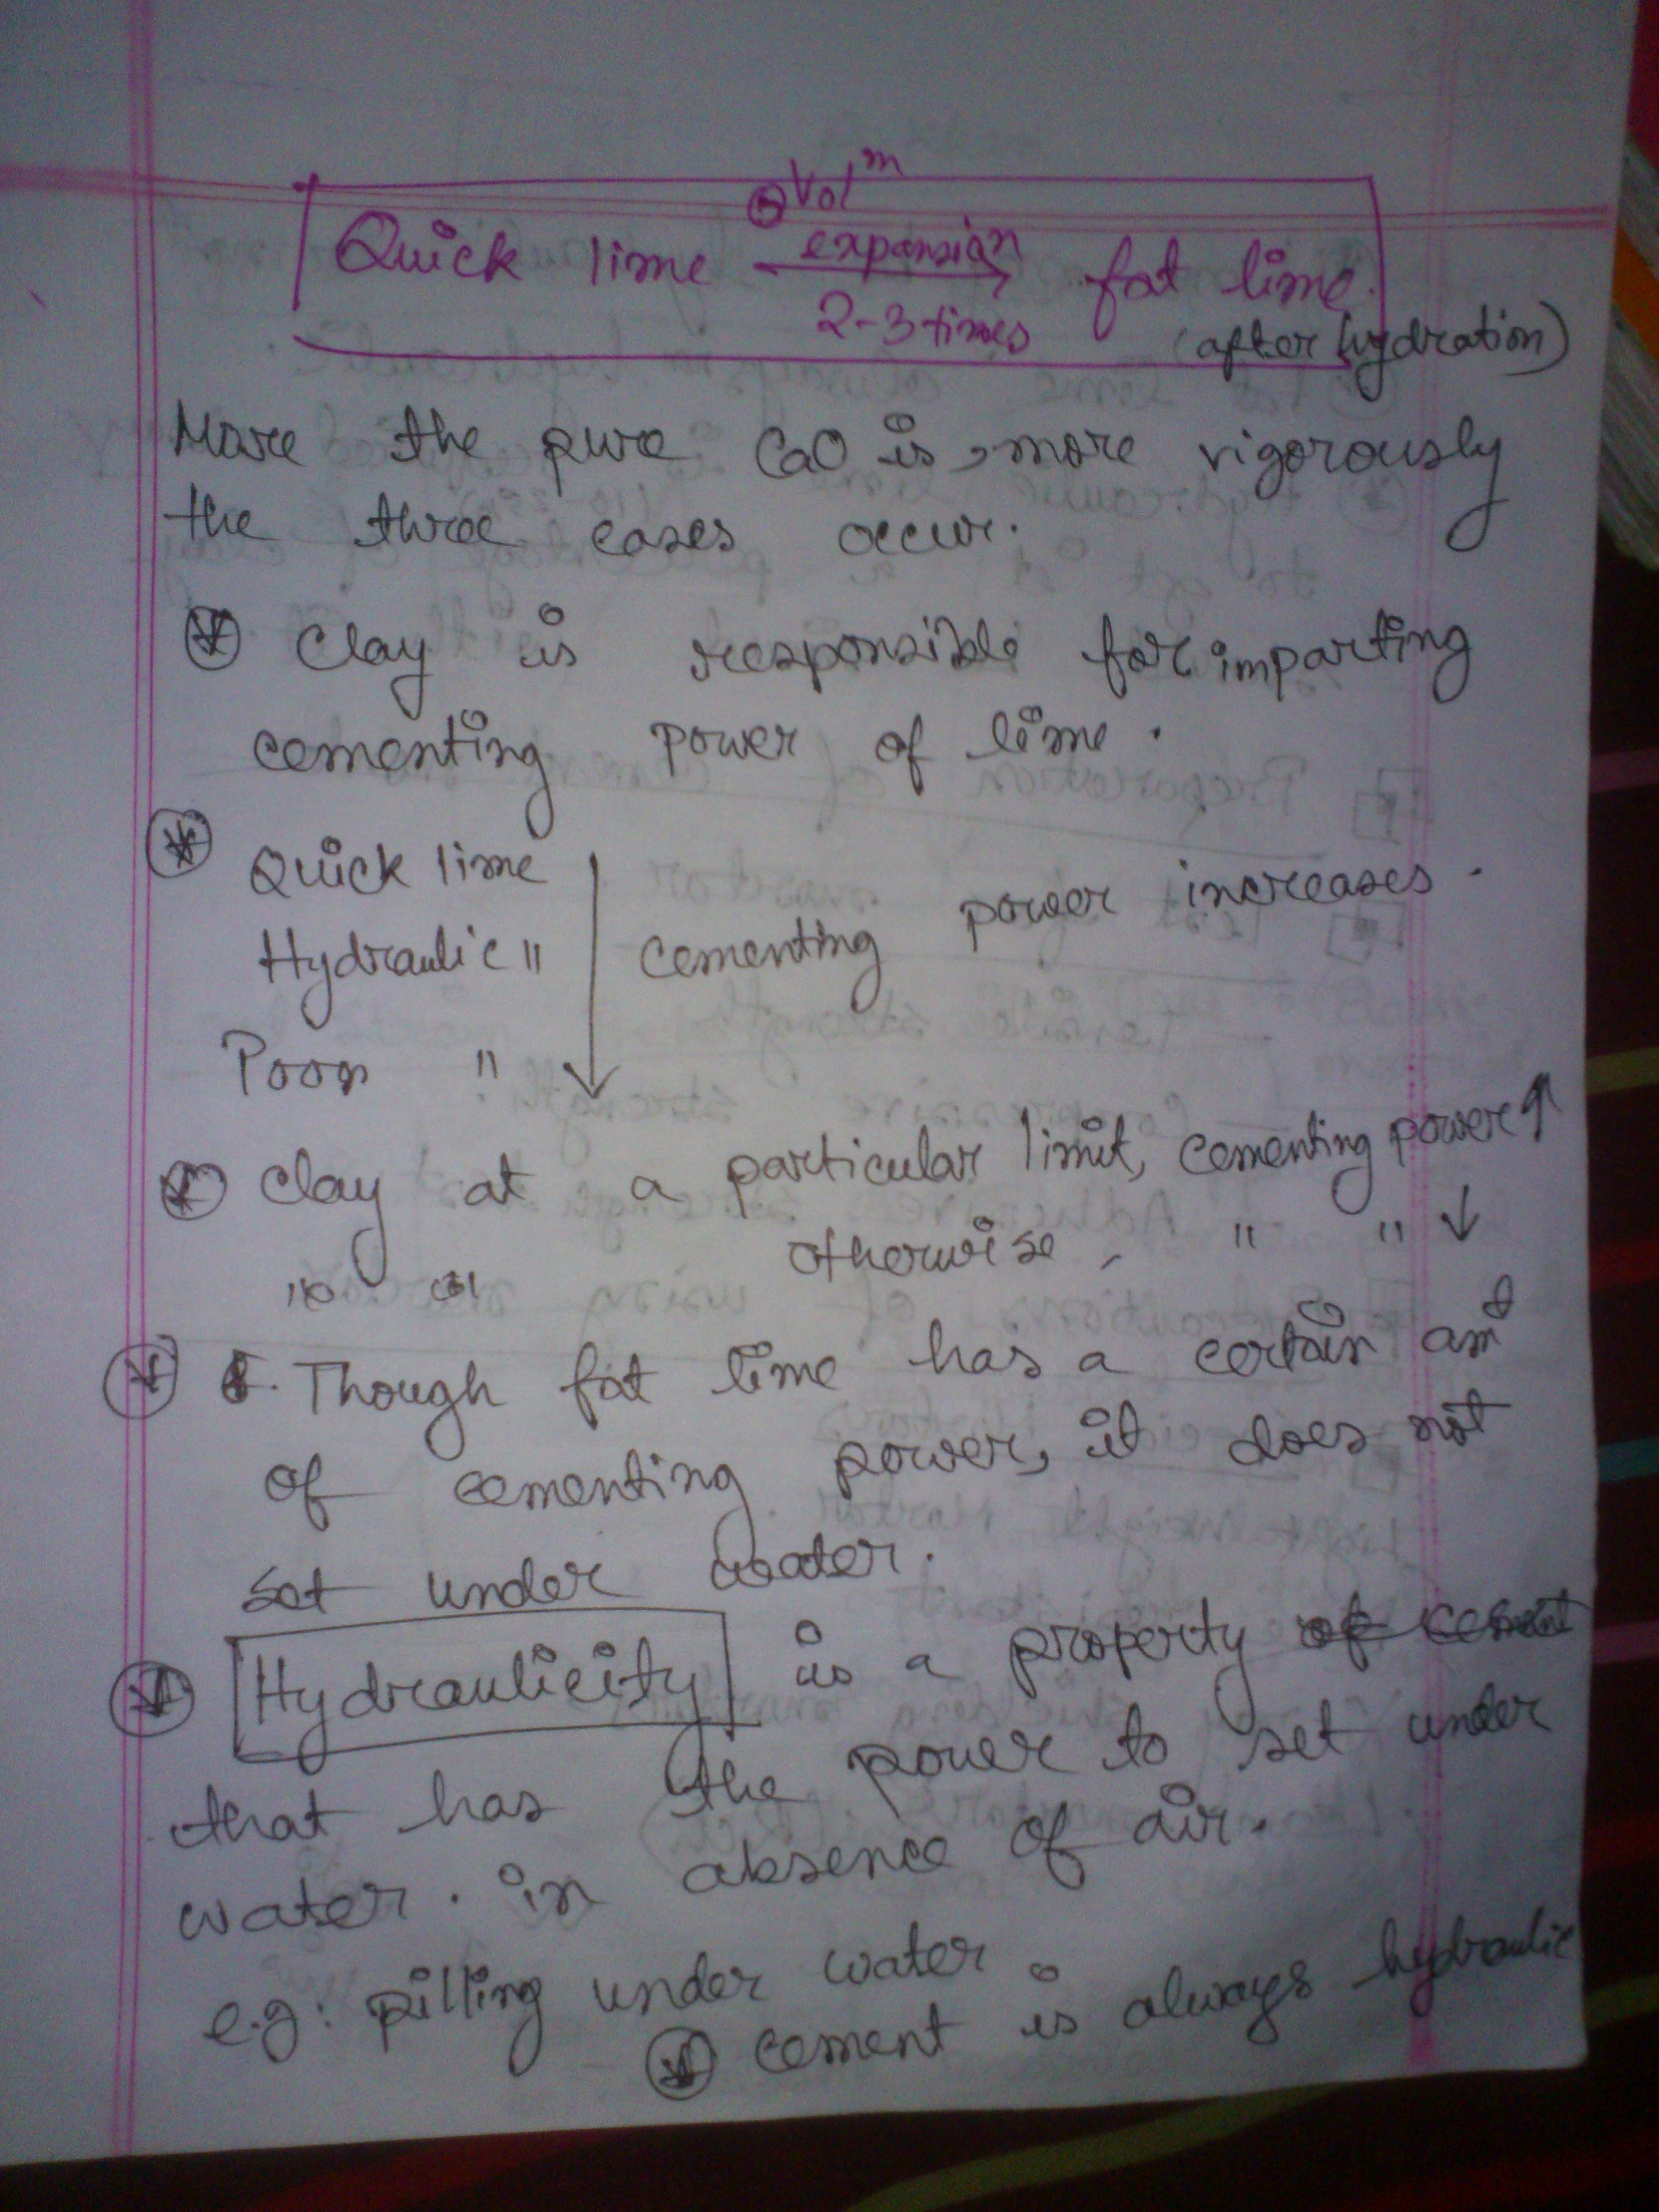 Vol^m
Quick lime expansion → fat lime.
2-3 times (after hydration)
More the pure CaO is, more vigorously
the three cases occur.
Clay is responsible for imparting
cementing power of lime.
Quick lime
power increases.
Hydraulic " cementing
Poor "
Clay at a particular limit, cementing power ↑
" " otherwise, " " ↓
Though fat lime has a certain amt
of cementing power, it does not
set under water.
Hydraulicity is a property of cement
that has the power to set under
water. in absence of air.
e.g: pilling under water.
cement is always hydraulic